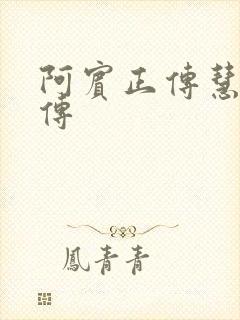 阿賓正傳慧
傳
鳳青青